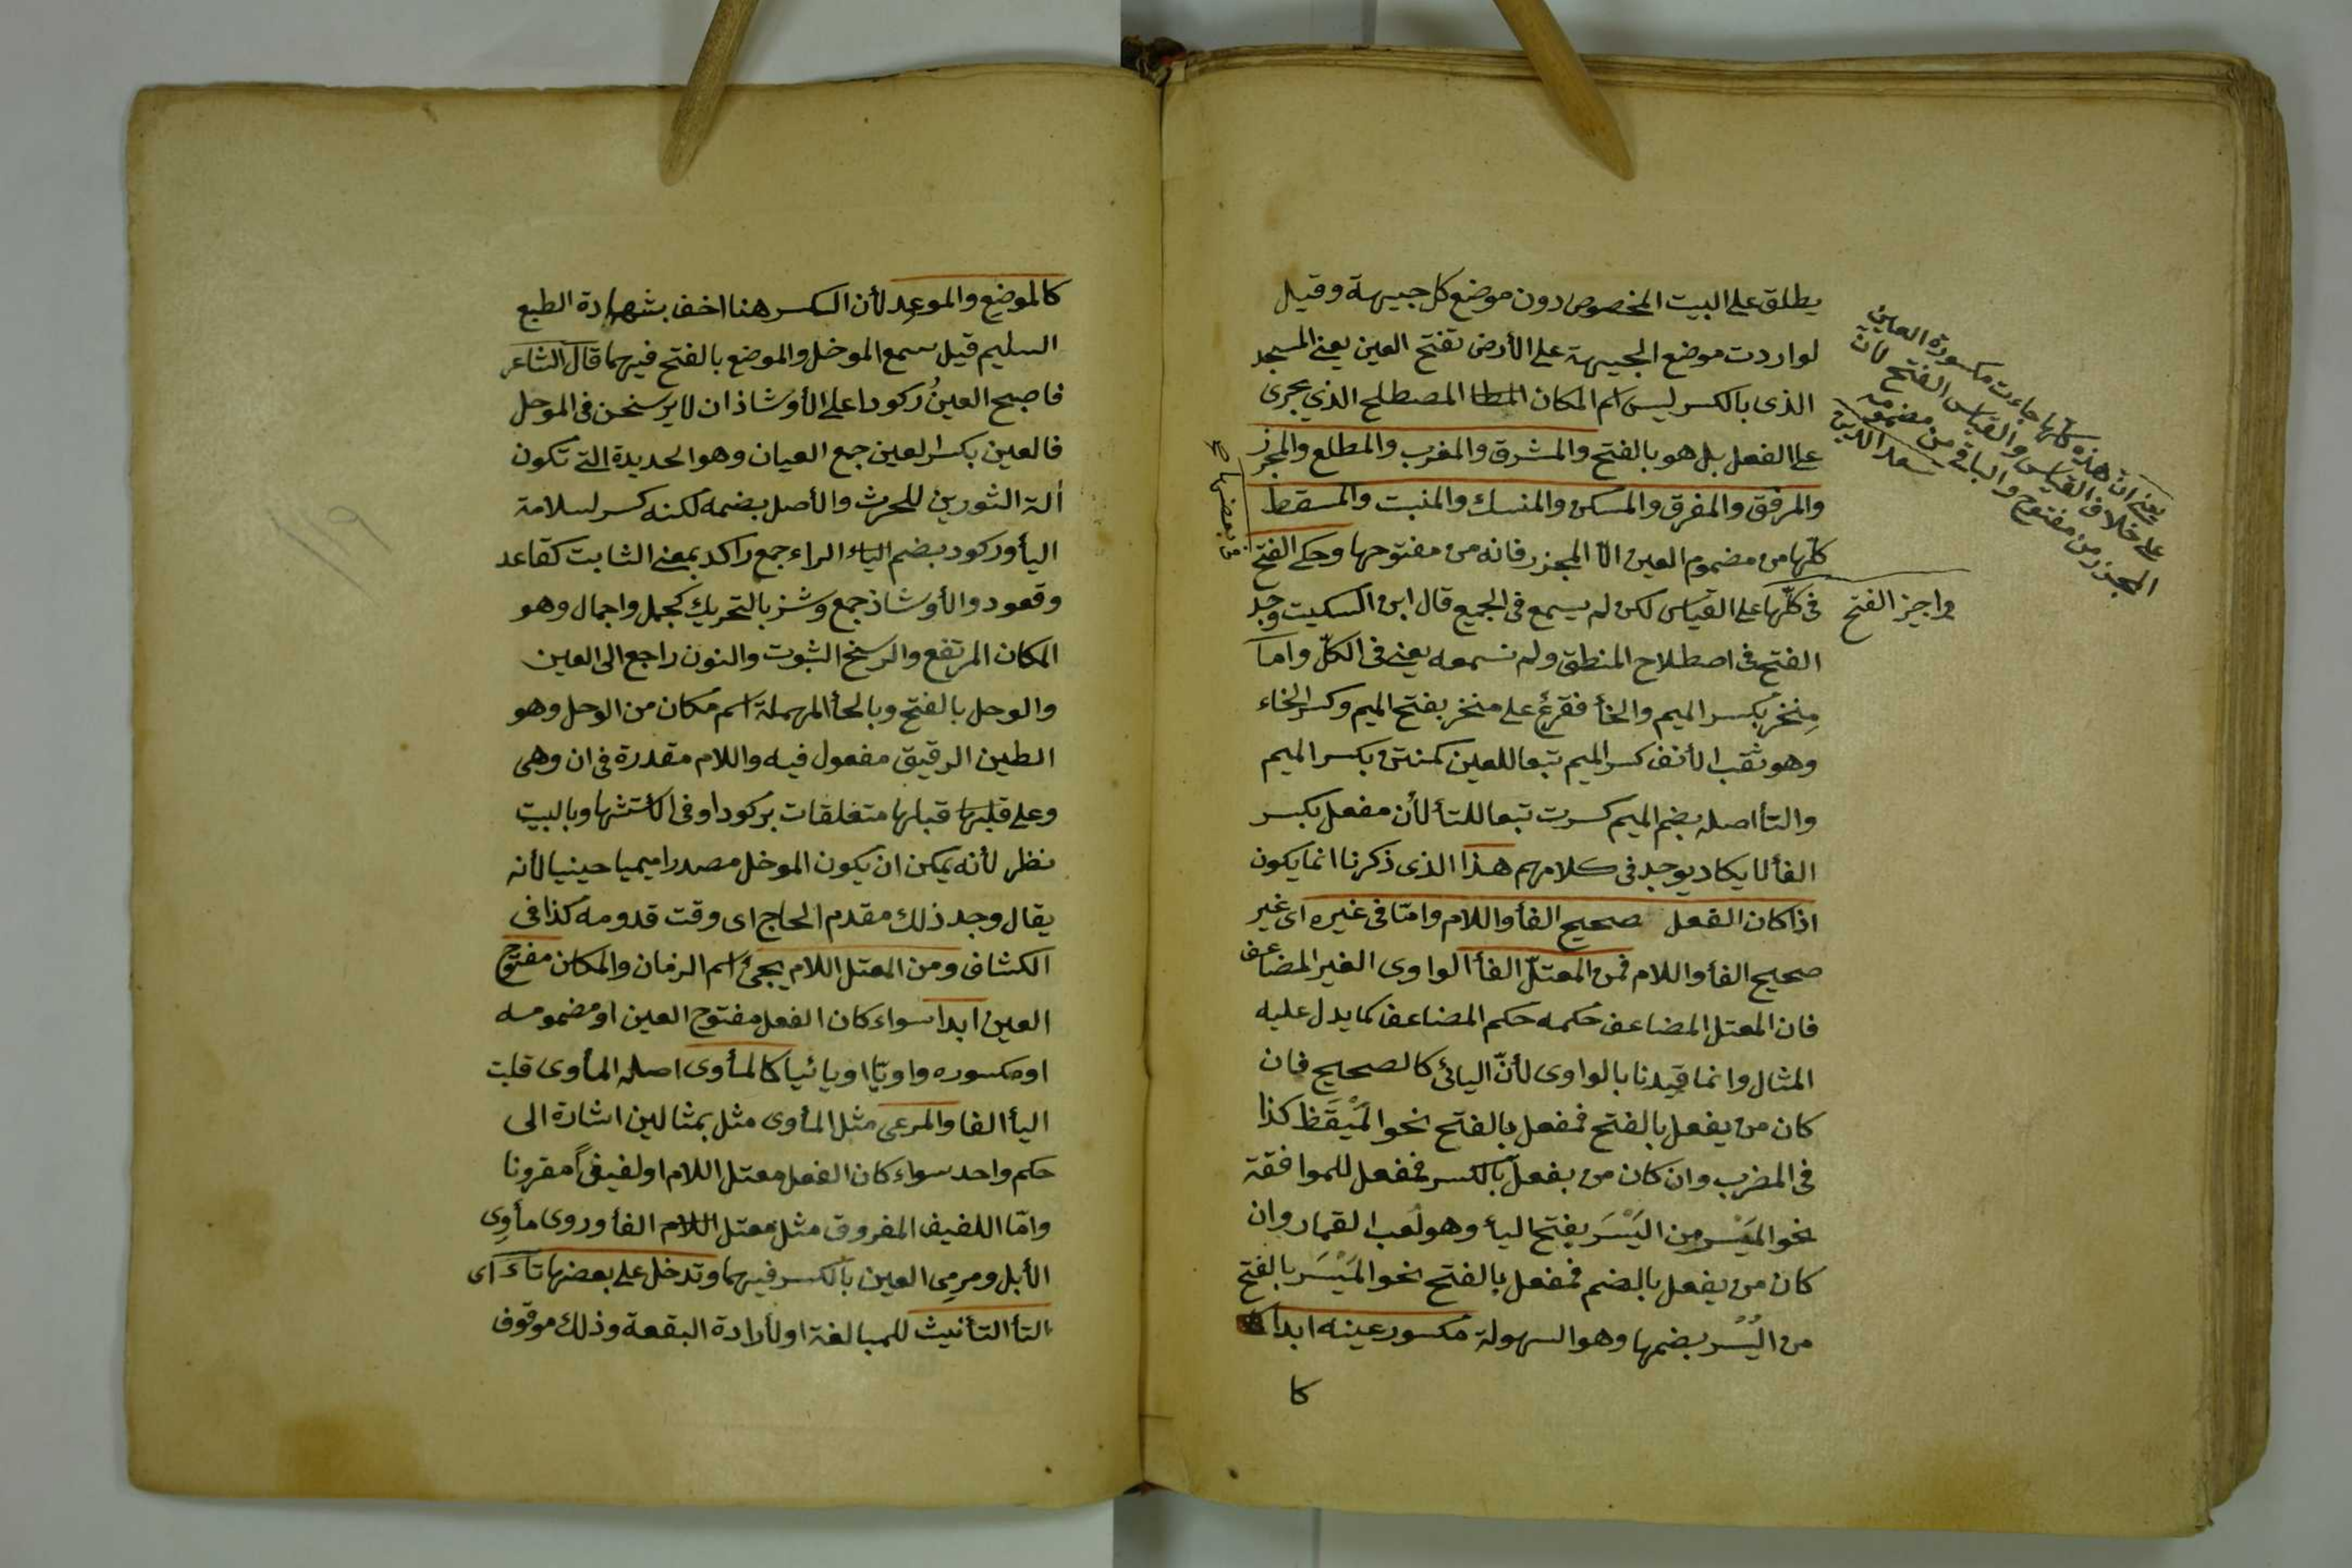 يطلق على البيت المخصوص دون موضع كل جبيهة وقيل
لو اردت موضع الجبيهة على الأرض تفتح العين يعنى المسجد
الذى بالكسر ليس اسم المكان المطا المصطلح الذي يجرى
على الفعل بل هو بالفتح والمشرق والمغرب والمطلع والمجزر
والمرفق والمفرق والمسكن والمنسك والمنبت والمسقط
كلّها من مضموم العين الّا المجزر فانه من مفتوحها وحكى الفتح
فى كلّها على القياس لكن لم يسمع فى الجميع قال ابن السكيت وجد
الفتح فى اصطلاح المنطق ولم نسمعه يعنى فى الكلّ واما
مِنخر بكسر الميم والخأ ففرع على منخر بفتح الميم وكسر الخاء
وهو ثقب الأنف كسر الميم تبعا للعين كمنتن بكسر الميم
والتأ اصله بضم الميم كسرت تبعا للتأ لأن مفعل بكسر
الفأ لا يكاد يوجد فى كلامهم هذا الذى ذكرنا انما يكون
اذا كان الفعل صحيح الفأ واللام وامّا فى غيره اى غير
صحيح الفأ واللام فمن المعتلّ الفأ الواوى الغير المضاعف
فان المعتل المضاعف حكمه حكم المضاعف كما يدل عليه
المثال وانما قيدنا بالواوى لأنّ اليائى كالصحيح فان
كان من يفعل بالفتح فمفعل بالفتح نحو المَيْقَظ كذا
فى المضرب وان كان من يفعل بالكسر فمفعل للموافقة
نحو المَيْسِر من اليَسَر بفتح اليأ وهو لعب القمار وان
كان من يفعل بالضم فمفعل بالفتح نحو المَيْسَر بالفتح
من اليُسُر بضمها وهو السهولة مكسور عينه ابدا
كا
يعنى ان هذه كلّها جاءت مكسورة العين
على خلاف القياس والقياس الفتح لأن
المجزر من مفتوح والباقى من مضمومه
سعد الدين
واجيز الفتح
من بعضها
كالموضع والموعد لأن الكسر هنا اخف بشهادة الطبع
السليم قيل سمع الموخل والموضع بالفتح فيهما قال الشاعر
فاصبح العينُ ركودا على الأوشاذ ان لا يرسخن فى الموحل
فالعين بكسر العين جمع العيان وهو الحديدة التى تكون
ألة الثورين للحرث والأصل بضمه لكنه كسر لسلامة
اليأ وركود بضم الياء الراء جمع راكد بمعنى الثابت كقاعد
وقعود والأوشاذ جمع وشز بالتحريك كجمل واجمال وهو
المكان المرتفع والرسخ الثبوت والنون راجع الى العين
والوحل بالفتح وبالحأ المهملة اسم مكان من الوحل وهو
الطين الرقيق مفعول فيه واللام مقدرة فى ان وهى
وعلى قبلها قبلها متعلقات بركودا وفى وبالبيت
نظر لأنه يمكن ان يكون الموخل مصدرا ميميا حينيا لأنه
يقال وجد ذلك مقدم الحاج اى وقت قدومه كذا فى
الكشاف ومن المعتل اللام يجىء اسم الزمان والمكان مفتوح
العين ابدا سواء كان الفعل مفتوح العين او مضمومه
او مكسوره واويّا او يائيا كالمأوى اصله المأوى قلبت
اليأ الفا والمرعى مثل المأوى مثل بمثالين اشارة الى
حكم واحد سواء كان الفعل معتل اللام او لفيفاً مقرونا
وامّا اللفيف المفروق مثل معتل اللام الفأ وروى مأوِى
الأبل ومرمِى العين بالكسر فيهما وتدخل على بعضها تاءٌ اى
التأ التأنيث للمبالغة او لأرادة البقعة وذلك موقوف
١١٩